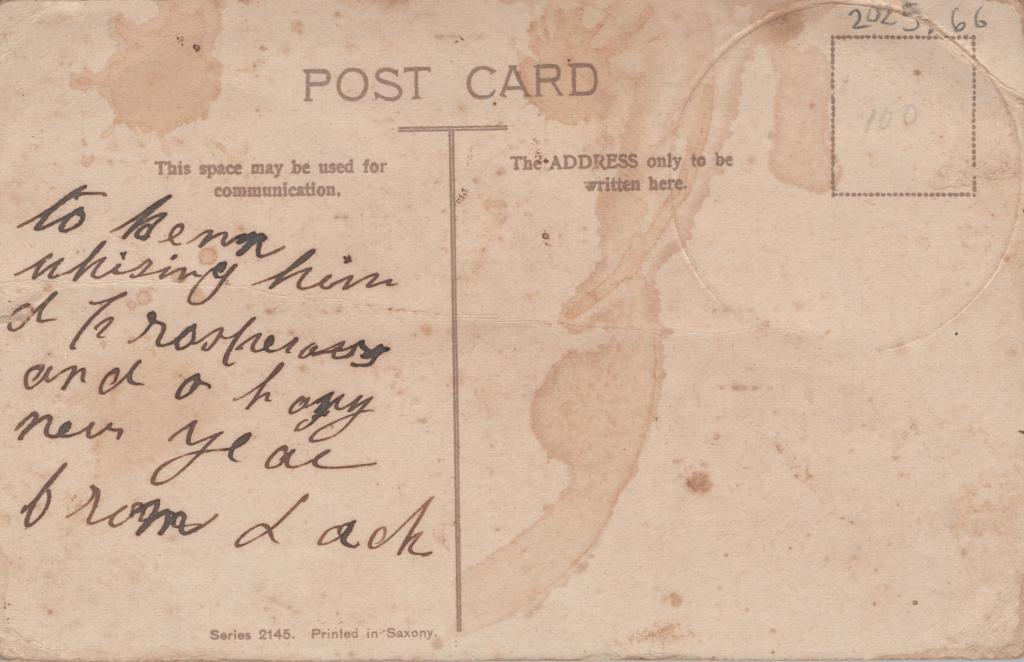 2025.66
POST CARD
100
This space may be used for
communication.
The ADDRESS only to be
written here.
to kenn
whising him
a Prosperous
and a hapy
new year
from Jack
Series 2145. Printed in Saxony.